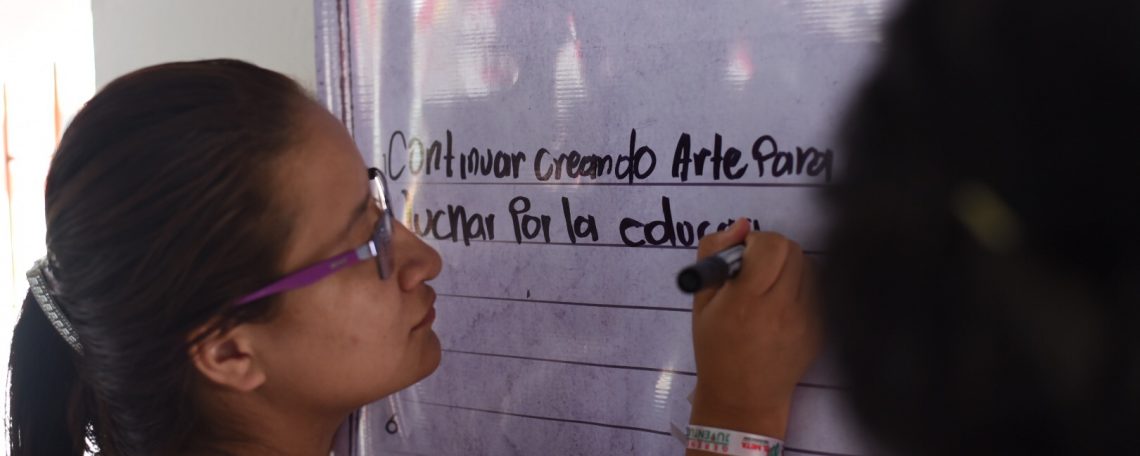 Continuar creando Arte Para
luchar Por la
JUVENT